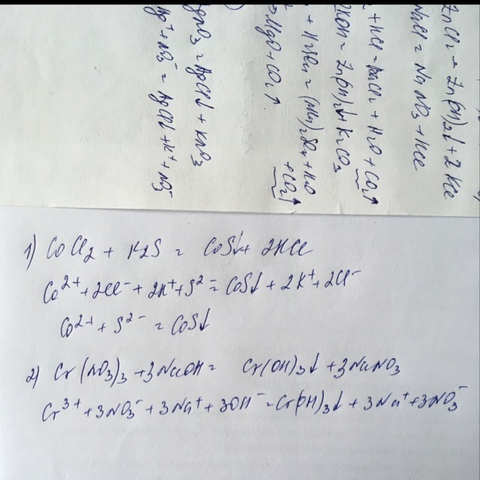 ZnCl2 + Zn(OH)2↓ + 2KCl
NaCl = NaNO3 + HCl
+ HCl = BaCl2 + H2O + CO2↑
2KOH = Zn(OH)2↓ + K2CO3
= MgO + CO2↑
+ CO2↑
AgNO3 = AgCl↓ + KNO3
Ag⁺ + NO3⁻ = AgCl↓ + K⁺ + NO3⁻
1) CoCl2 + K2S = CoS↓ + 2KCl
Co²⁺ + 2Cl⁻ + 2K⁺ + S²⁻ = CoS↓ + 2K⁺ + 2Cl⁻
Co²⁺ + S²⁻ = CoS↓
2) Cr(NO3)3 + 3NaOH = Cr(OH)3↓ + 3NaNO3
Cr³⁺ + 3NO3⁻ + 3Na⁺ + 3OH⁻ = Cr(OH)3↓ + 3Na⁺ + 3NO3⁻